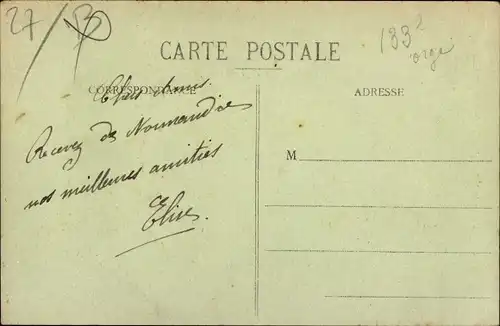 27/
133
orge
CARTE POSTALE
CORRESPONDANCE
ADRESSE
Chers Amis
Recevez de Normandie
nos meilleures amitiés
Elise.
M